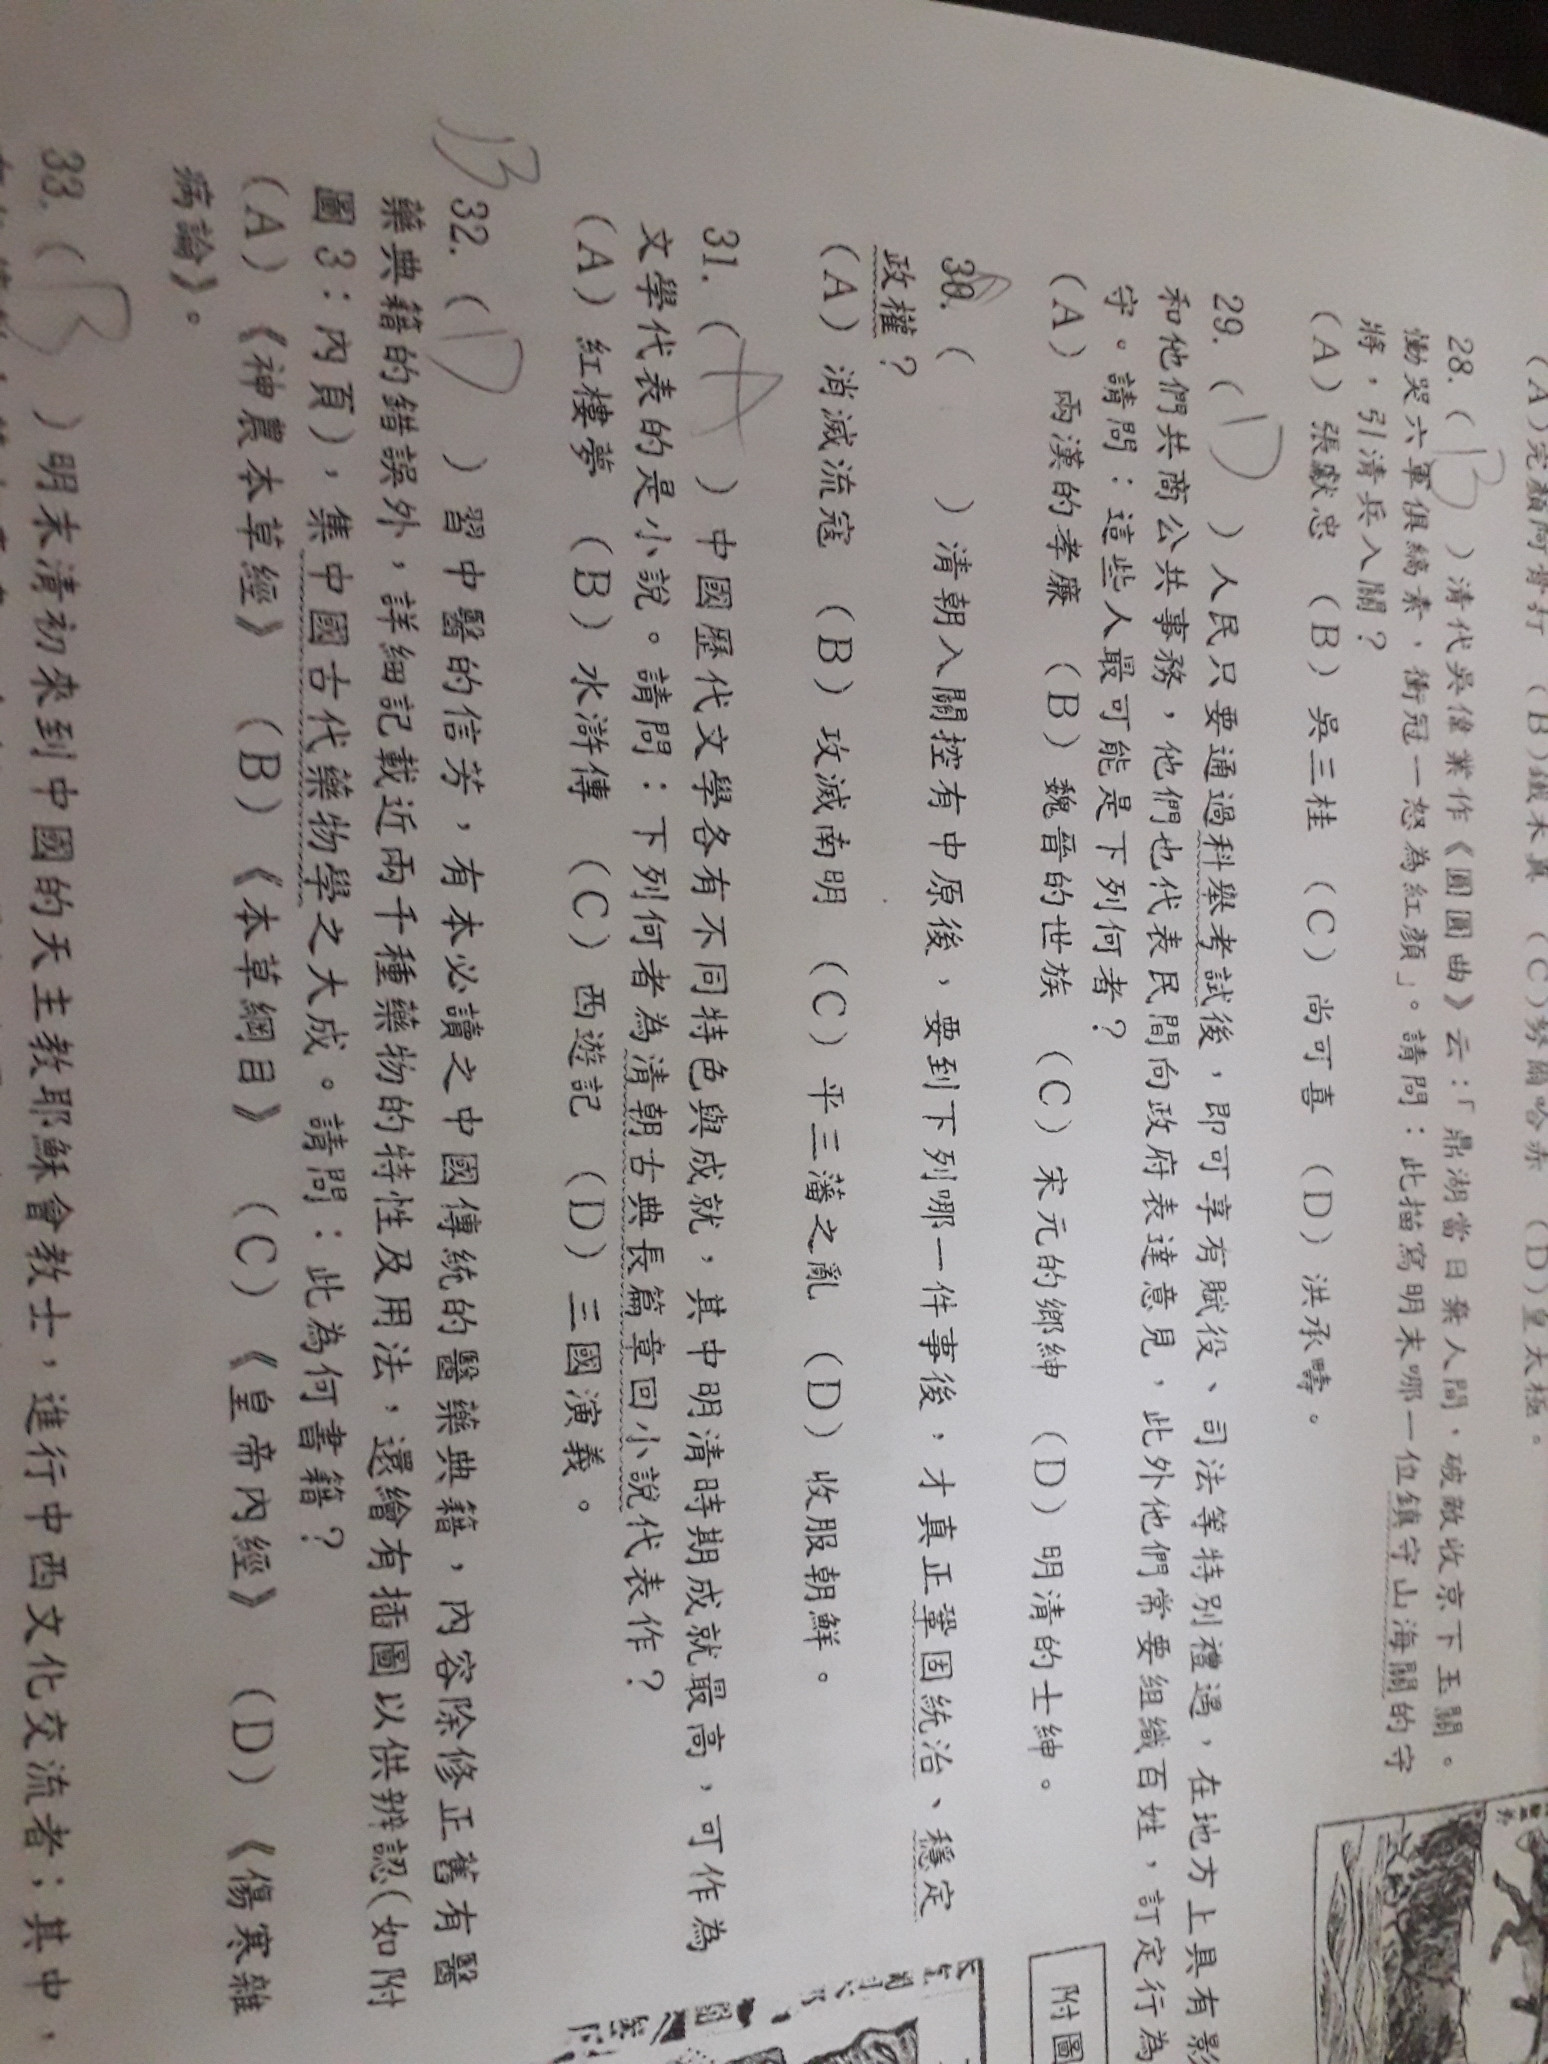 (A)完顏阿骨打 (B)鐵木真 (C)努爾哈赤 (D)皇太極。
28.( B )清代吳偉業作《圓圓曲》云：「鼎湖當日棄人間，破敵收京下玉關。
慟哭六軍俱縞素，衝冠一怒為紅顏」。請問：此描寫明末哪一位鎮守山海關的守
將，引清兵入關？
(A)張獻忠 (B)吳三桂 (C)尚可喜 (D)洪承疇。
29.( D )人民只要通過科舉考試後，即可享有賦役、司法等特別禮遇，在地方上具有影
和他們共商公共事務，他們也代表民間向政府表達意見，此外他們常要組織百姓，訂定行為
守。請問：這些人最可能是下列何者？
(A)兩漢的孝廉 (B)魏晉的世族 (C)宋元的鄉紳 (D)明清的士紳。
30.( )清朝入關控有中原後，要到下列哪一件事後，才真正鞏固統治、穩定
政權？
(A)消滅流寇 (B)攻滅南明 (C)平三藩之亂 (D)收服朝鮮。
31.( A )中國歷代文學各有不同特色與成就，其中明清時期成就最高，可作為
文學代表的是小說。請問：下列何者為清朝古典長篇章回小說代表作？
(A)紅樓夢 (B)水滸傳 (C)西遊記 (D)三國演義。
B
32.( D )習中醫的信芳，有本必讀之中國傳統的醫藥典籍，內容除修正舊有醫
藥典籍的錯誤外，詳細記載近兩千種藥物的特性及用法，還繪有插圖以供辨認(如附
圖3：內頁)，集中國古代藥物學之大成。請問：此為何書籍？
(A)《神農本草經》 (B)《本草綱目》 (C)《皇帝內經》 (D)《傷寒雜
病論》。
33.( B )明末清初來到中國的天主教耶穌會教士，進行中西文化交流者；其中，
附圖